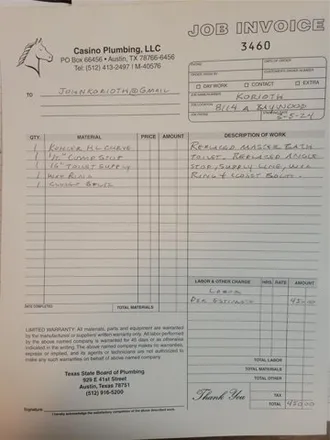 JOB INVOICE
3460
Casino Plumbing, LLC
PO Box 66456 • Austin, TX 78766-6456
Tel: (512) 413-2497 / M-40576
PHONE
DATE OF ORDER
ORDER TAKEN BY
CUSTOMER'S ORDER NUMBER
DAY WORK CONTACT EXTRA
TO JOHNKORIOTH@GMAIL
JOB NAME/NUMBER
KORIOTH
JOB LOCATION
8114 A BAYWOOD
JOB PHONE
8-5-24
QTY. MATERIAL PRICE AMOUNT DESCRIPTION OF WORK
1 KOHLER HL CURVE
1 1/2" COMP STOP
1 TOILET SUPPLY
1 WAX RING
1 CLOSET BOLTS
REPLACED MASTER BATH
TOILET. REPLACED ANGLE
STOP, SUPPLY LINE, WAX
RING & CLOSET BOLTS.
LABOR & OTHER CHARGE HRS. RATE AMOUNT
LABOR
PER ESTIMATE 450.00
DATE COMPLETED TOTAL MATERIALS
LIMITED WARRANTY: All materials, parts and equipment are warranted
by the manufacturers' or suppliers' written warranty only. All labor performed
by the above named company is warranted for 45 days or as otherwise
indicated in writing. The above named company makes no warranties,
express or implied, and its agents or technicians are not authorized to
make any such warranties on behalf of above named company.
TOTAL LABOR
TOTAL MATERIALS
TOTAL OTHER
Texas State Board of Plumbing
929 E 41st Street
Austin, Texas 78751
(512) 916-5200
Thank You
TAX
TOTAL 450.00
Signature
I hereby acknowledge the satisfactory completion of the above described work.